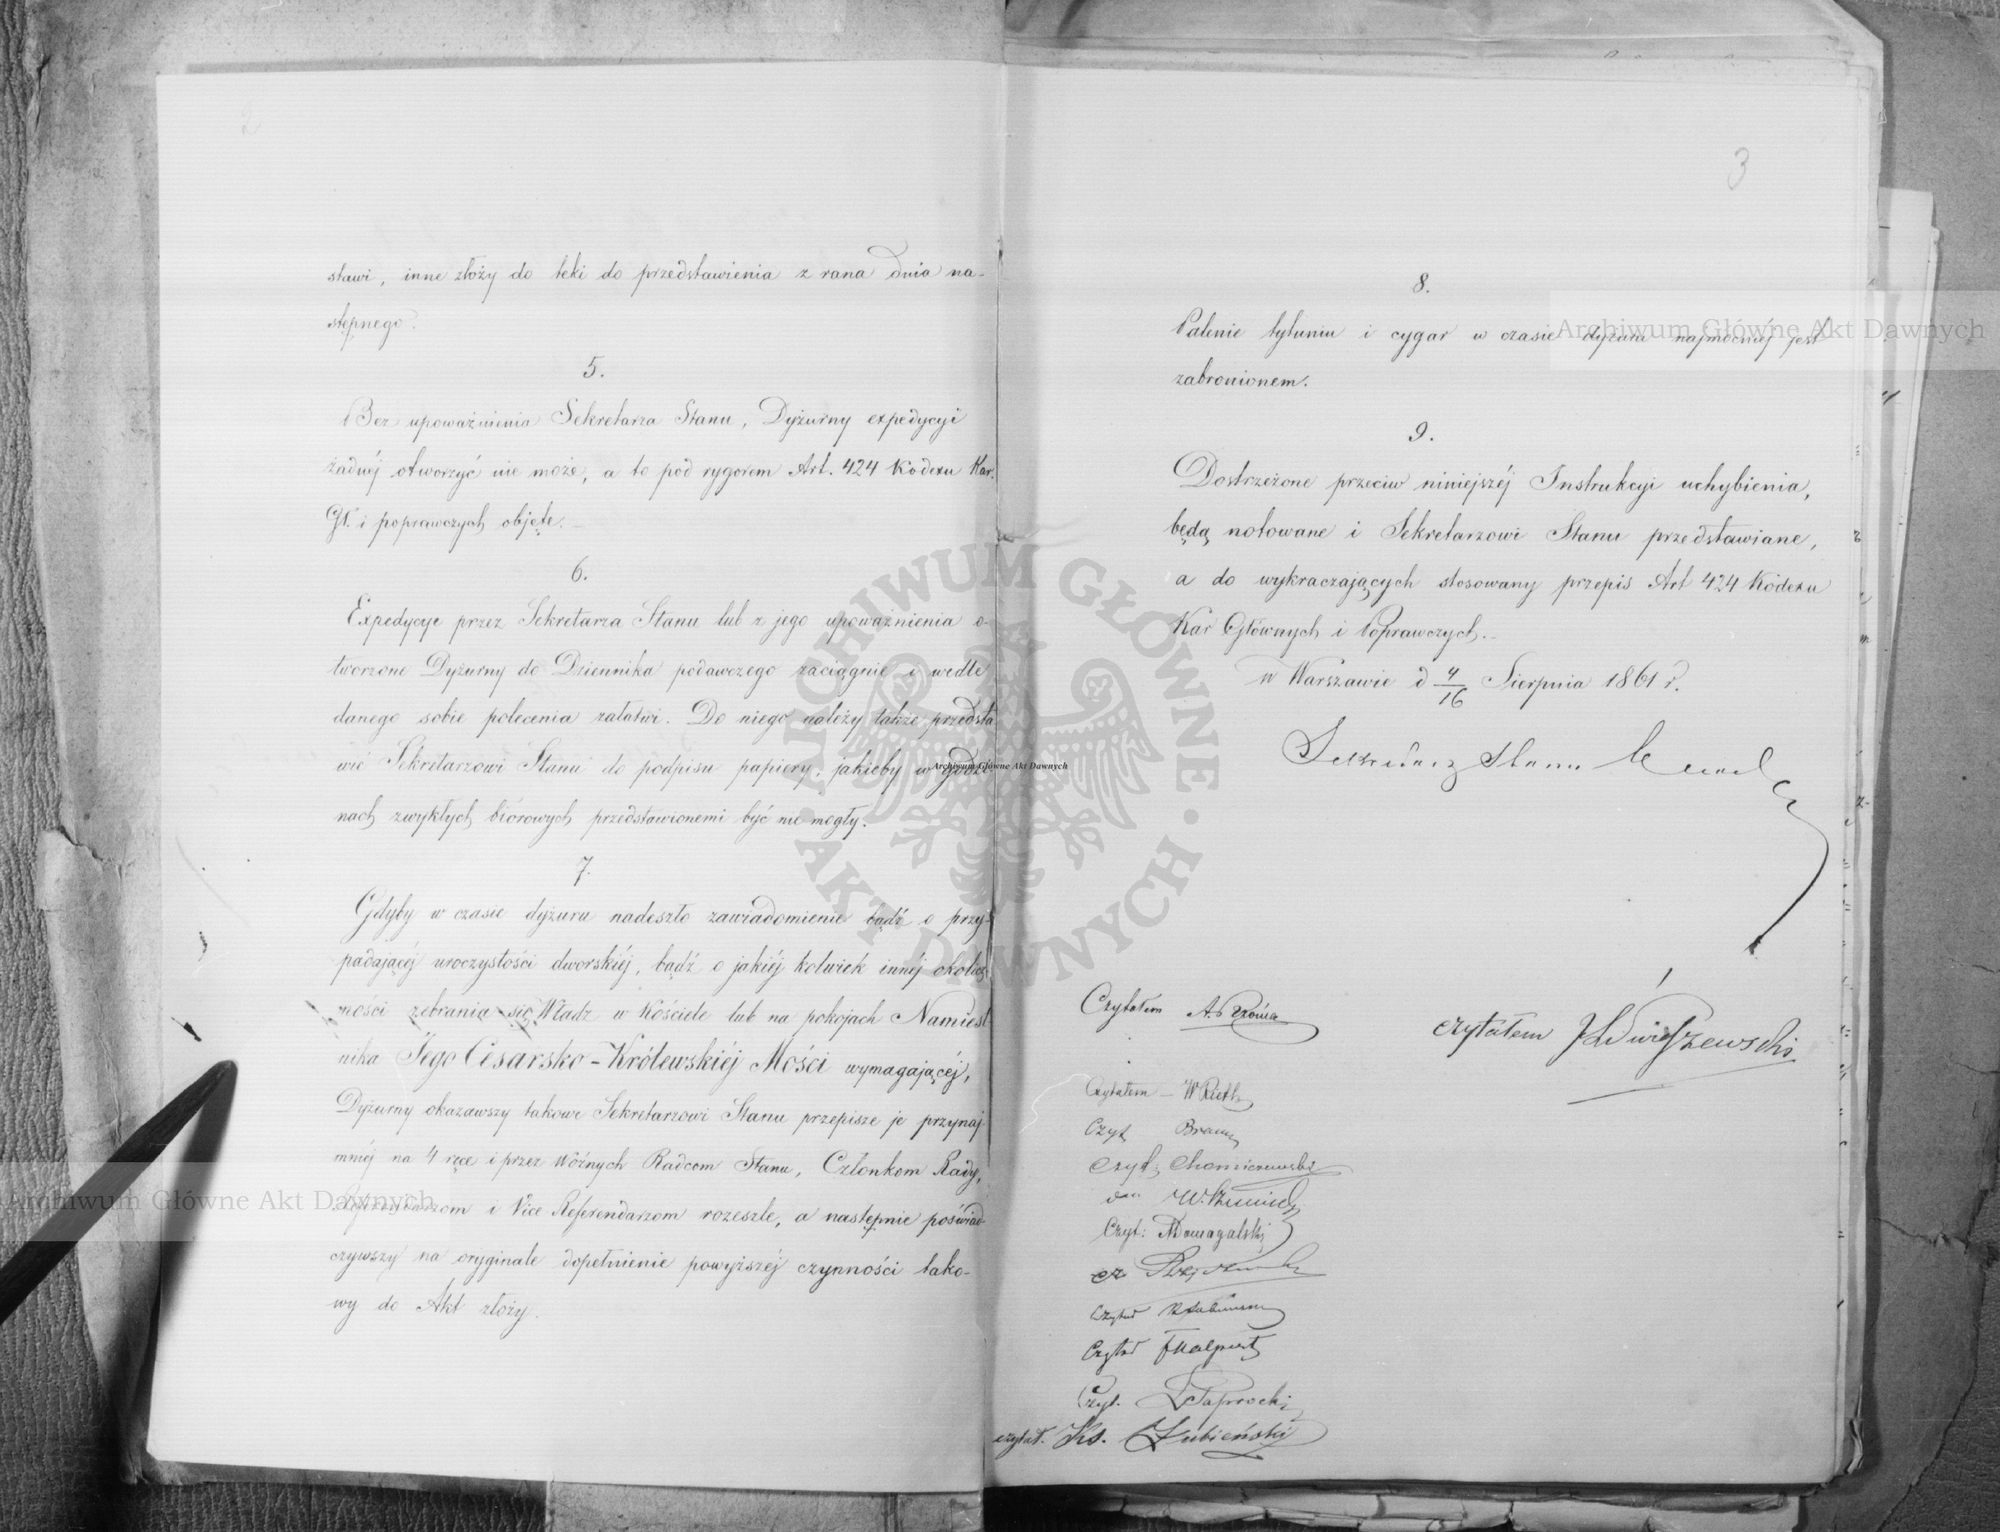 2
stawi, inne złoży do teki do przedstawienia z rana dnia na-
stępnego.
5.
Bez upoważnienia Sekretarza Stanu, Dyżurny expedycyi
żadnéj otworzyć nie może, a to pod rygorem Art. 424 Kodexu Kar.
Gł. i poprawczych objęte.
6.
Expedycye przez Sekretarza Stanu lub z jego upoważnienia o-
tworzone Dyżurny do Dziennika podawczego zaciągnie i wedle
danego sobie polecenia załatwi. Do niego należy także przedsta
wić Sekretarzowi Stanu do podpisu papiery, jakieby w godzi-
nach zwykłych biórowych przedstawionemi być nie mogły.
7.
Gdyby w czasie dyżuru nadeszło zawiadomienie bądź o przy-
padającéj uroczystości dworskiéj, bądź o jakiéj kolwiek innéj okolicz-
ności zebrania się Władz w Kościele lub na pokojach Namiest
nika Jego Cesarsko-Królewskiéj Mości wymagającéj,
Dyżurny okazawszy takowe Sekretarzowi Stanu przepisze je przynaj-
mniéj na 4 ręce i przez Woźnych Radcom Stanu, Członkom Rady,
Referendarzom i Vice Referendarzom rozeszle, a następnie poświad-
czywszy na oryginale dopełnienie powyższéj czynności tako-
wy do Akt złoży.
3
8.
Palenie tytuniu i cygar w czasie dyżuru najmocniéj jest
zabronionem.
9.
Dostrzeżone przeciw niniejszéj Instrukcyi uchybienia,
będą notowane i Sekretarzowi Stanu przedstawiane,
a do wykraczających stosowany przepis Art 424 Kodexu
Kar Głównych i Poprawczych.
w Warszawie d 4/16 Sierpnia 1861 r.
Sekretarz Stanu
Czytałem A.
czytałem
Czytałem – W
Czyt Braun
Czyt:
W.
Czyt: Domagalski
cz
Czytał
Czytał
Czyt. Paprocki
czytał. Ks. Łubieński
Archiwum Główne Akt Dawnych
Archiwum Główne Akt Dawnych
Archiwum Główne Akt Dawnych
ARCHIWUM GŁÓWNE · AKT DAWNYCH ·